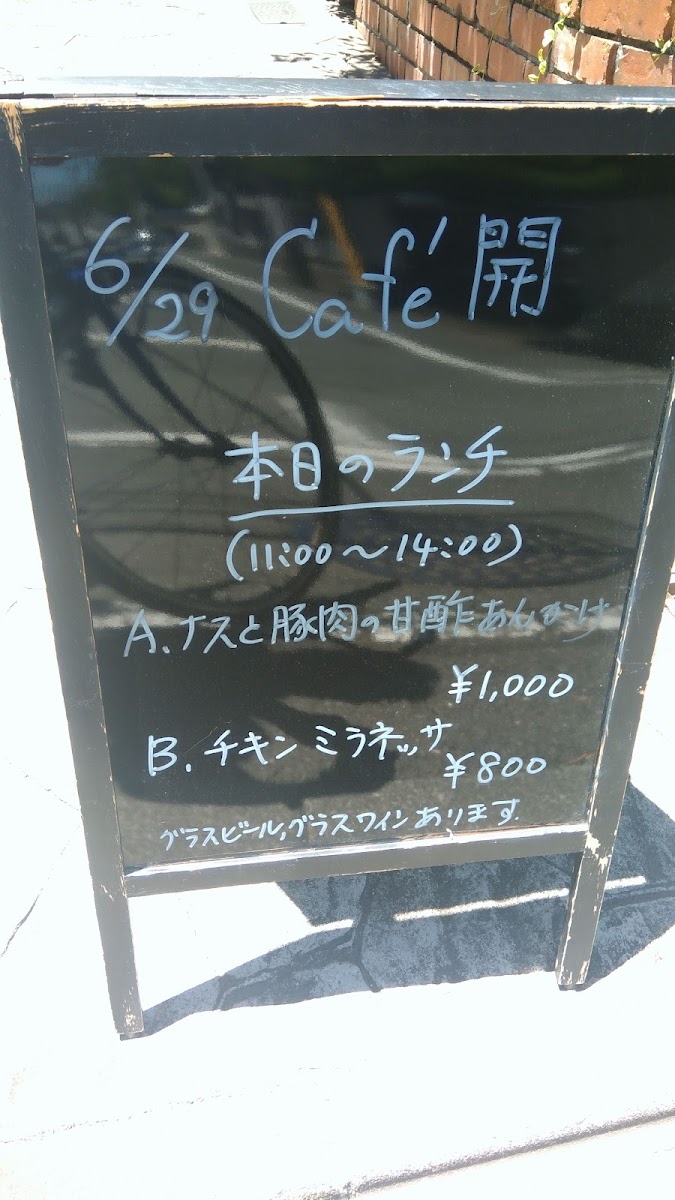 6/29 Café 開
本日のランチ
(11:00～14:00)
A. ナスと豚肉の甘酢あんかけ
¥1,000
B. チキン ミラネッサ
¥800
グラスビール,グラスワインあります.